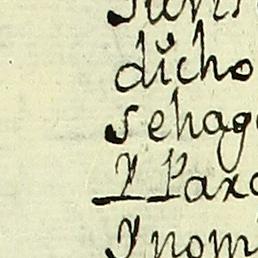 dicho
sehag
Y Paxa
Ynom